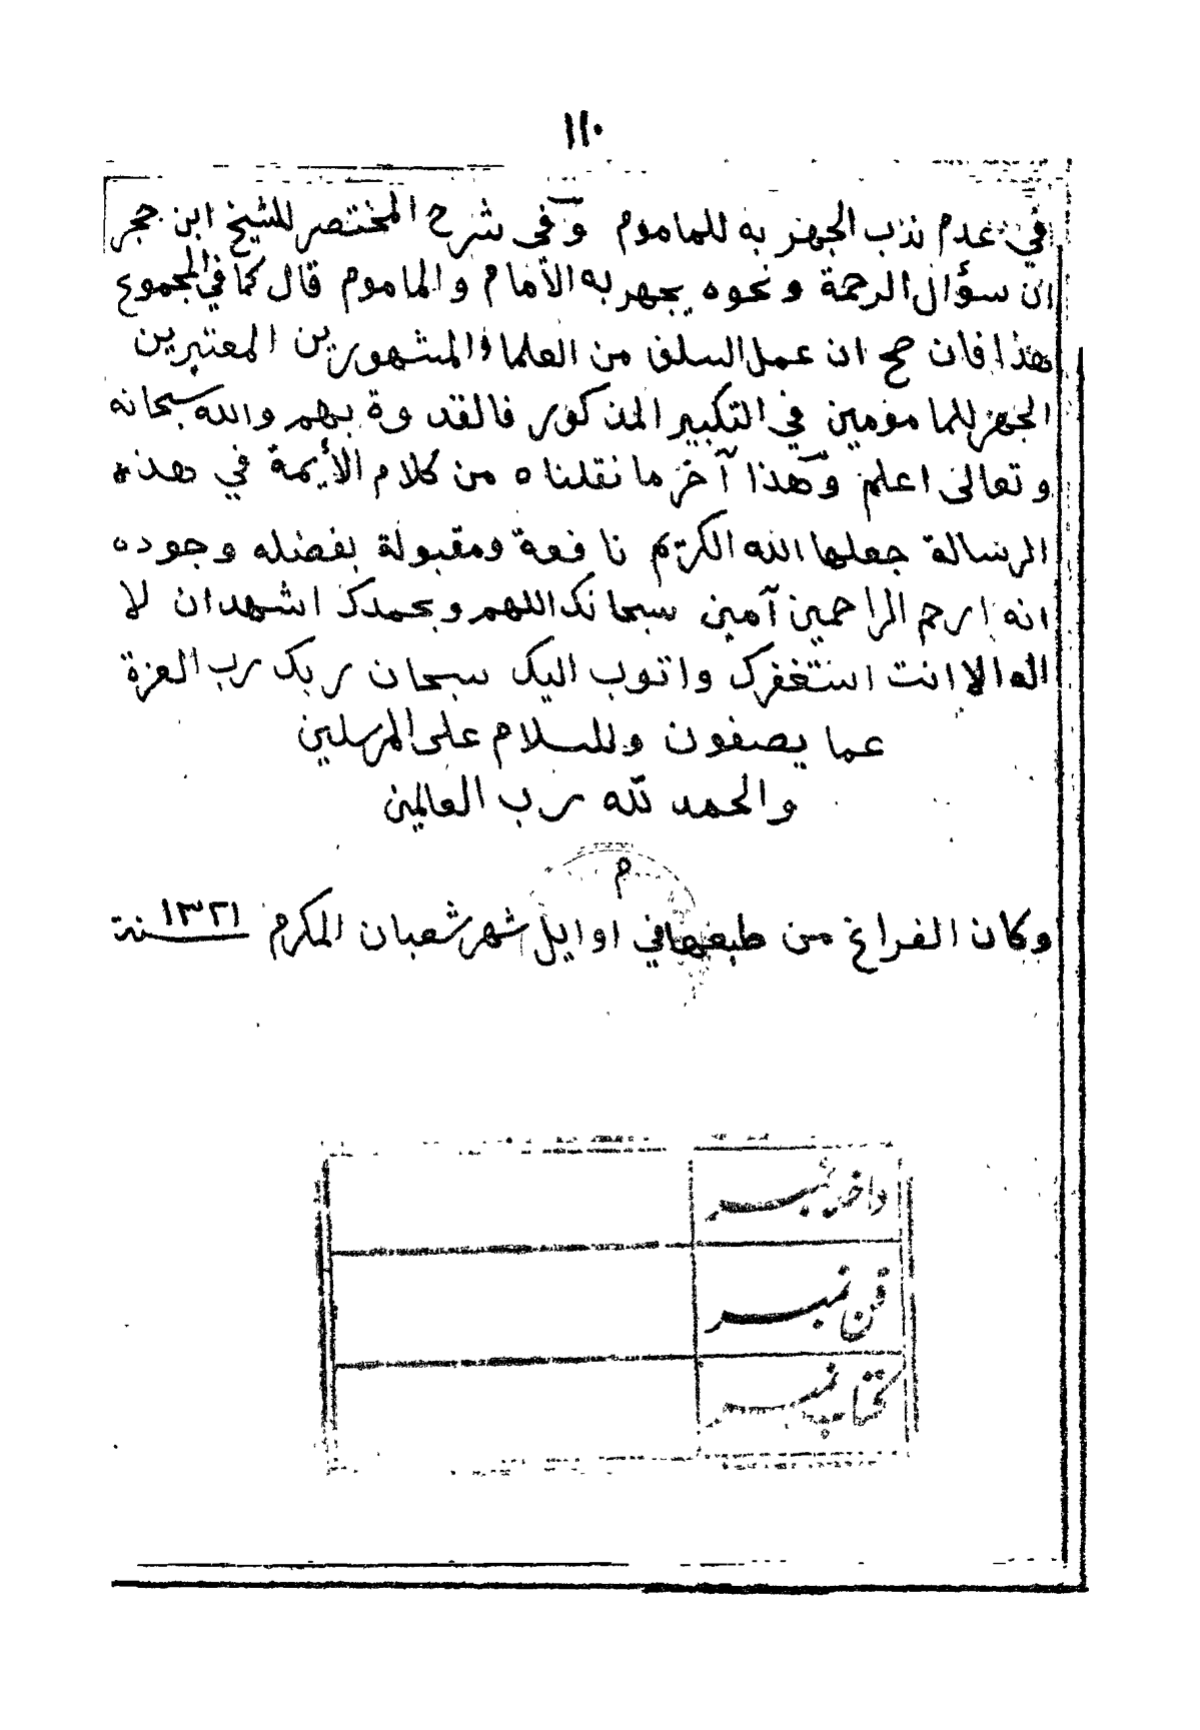 ١١٠
في عدم ندب الجهر به للماموم وفي شرح المختصر للشيخ ابن حجر
ان سؤال الرحمة ونحوه يجهر به الأمام والماموم قال كما في المجموع
هذا فان صح ان عمل السلف من العلما والمشهورين المعتبرين
الجهر للمامومين في التكبير المذكور فالقدوة بهم والله سبحانه
وتعالى اعلم وهذا آخر ما نقلناه من كلام الأيمة في هذه
الرسالة جعلها الله الكريم نافعة ومقبولة بفضله وجوده
انه ارحم الراحمين آمين سبحانك اللهم وبحمدك اشهد ان لا
اله الا انت استغفرك واتوب اليك سبحان ربك رب العزة
عما يصفون وللسلام على المرسلين
والحمد لله رب العالمين
م
وكان الفراغ من طبعها في اوايل شهر شعبان المكرم ١٣٢١ سنة
داخلہ نمبر
فن نمبر
کتاب نمبر